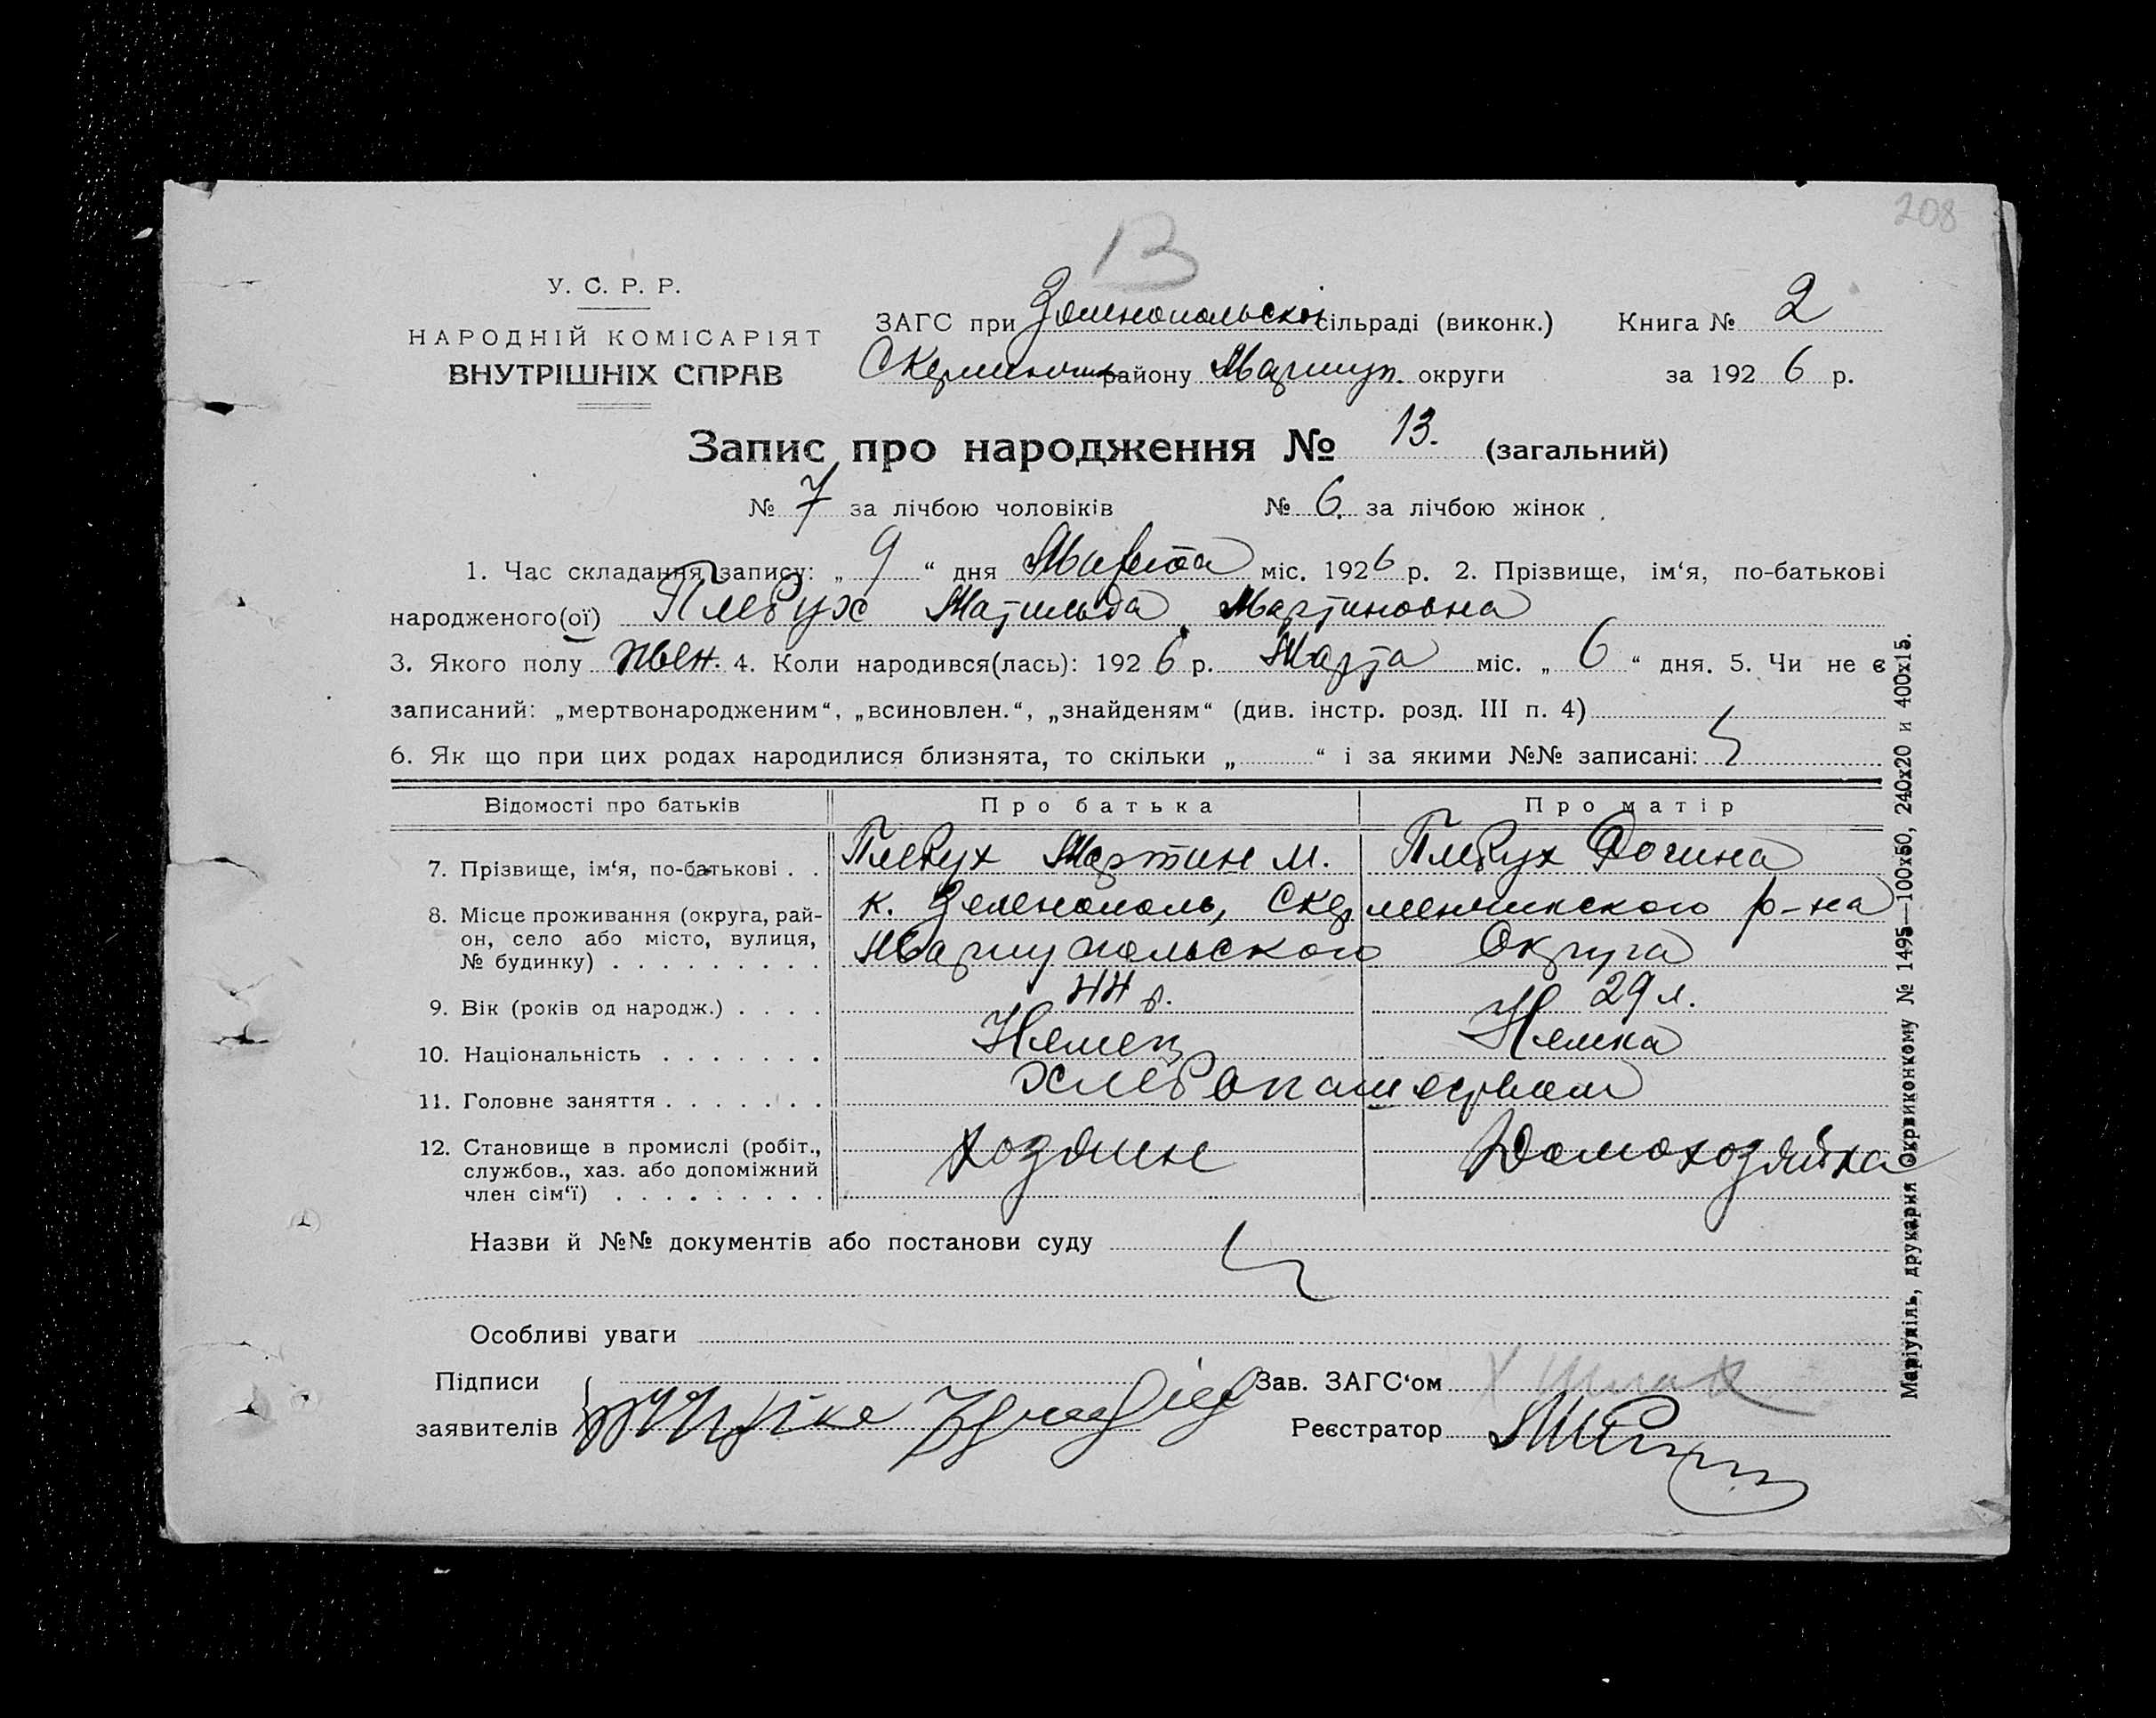 208
13
У. С. Р. Р.
НАРОДНІЙ КОМІСАРІЯТ
ВНУТРІШНІХ СПРАВ
ЗАГС при Зеленопольской сільраді (виконк.) Книга № 2
району Мариуп. округи за 1926 р.
Запис про народження № 13. (загальний)
№ 7 за лічбою чоловіків № 6. за лічбою жінок
1. Час складання запису: „ 9 “ дня Марта міс. 1926 р. 2. Прізвище, ім‘я, по-батькові
народженого(ої) Плебух Матильда Мартиновна
3. Якого полу жен. 4. Коли народився(лась): 1926 р. Марта міс. „ 6 “ дня. 5. Чи не є
записаний: „мертвонародженим“, „всиновлен.“, „знайденям“ (див. інстр. розд. III п. 4)
6. Як що при цих родах народилися близнята, то скільки „ “ і за якими №№ записані:
Відомості про батьків Про батька Про матір
7. Прізвище, ім‘я, по-батькові . . Плебух Мартин М. Плебух
8. Місце проживання (округа, рай- к. Зеленополь, р-на
он, село або місто, вулиця, Мариупольского Округа
№ будинку) . . . . . . . . .
9. Вік (років од народж.) . . . . 44 г. 29 л.
10. Національність . . . . . . . Немец Немка
11. Головне заняття . . . . . . . Хлебопашеством
12. Становище в промислі (робіт., Хозяин Домохозяйка
службов., хаз. або допоміжний
член сім‘ї) . . . . . . . . .
Назви й №№ документів або постанови суду
Особливі уваги
Підписи Зав. ЗАГС‘ом
заявителів Реєстратор
Маріупіль, друкарня Окрвиконкому № 1495—100х50, 240х20 и 400х15.